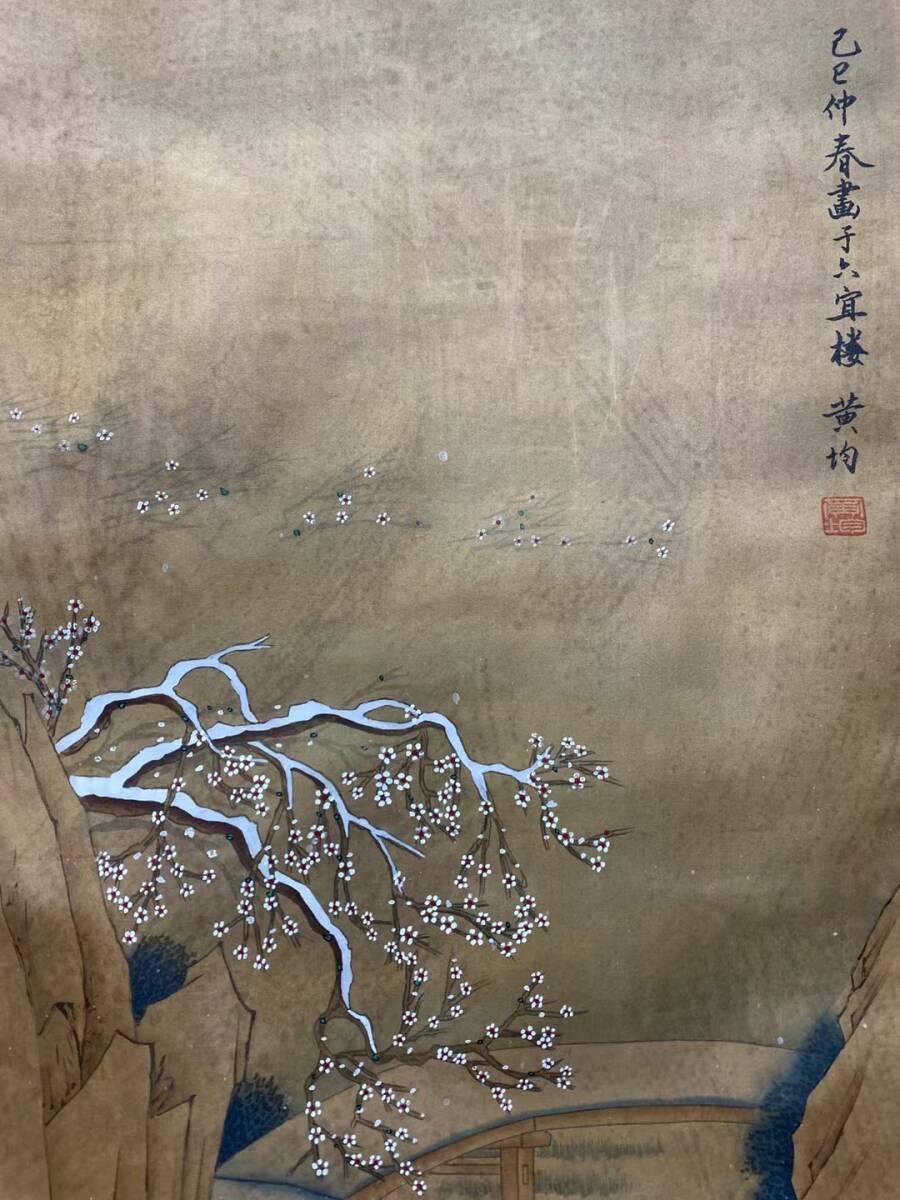 己巳仲春畫于六宜楼 黄均